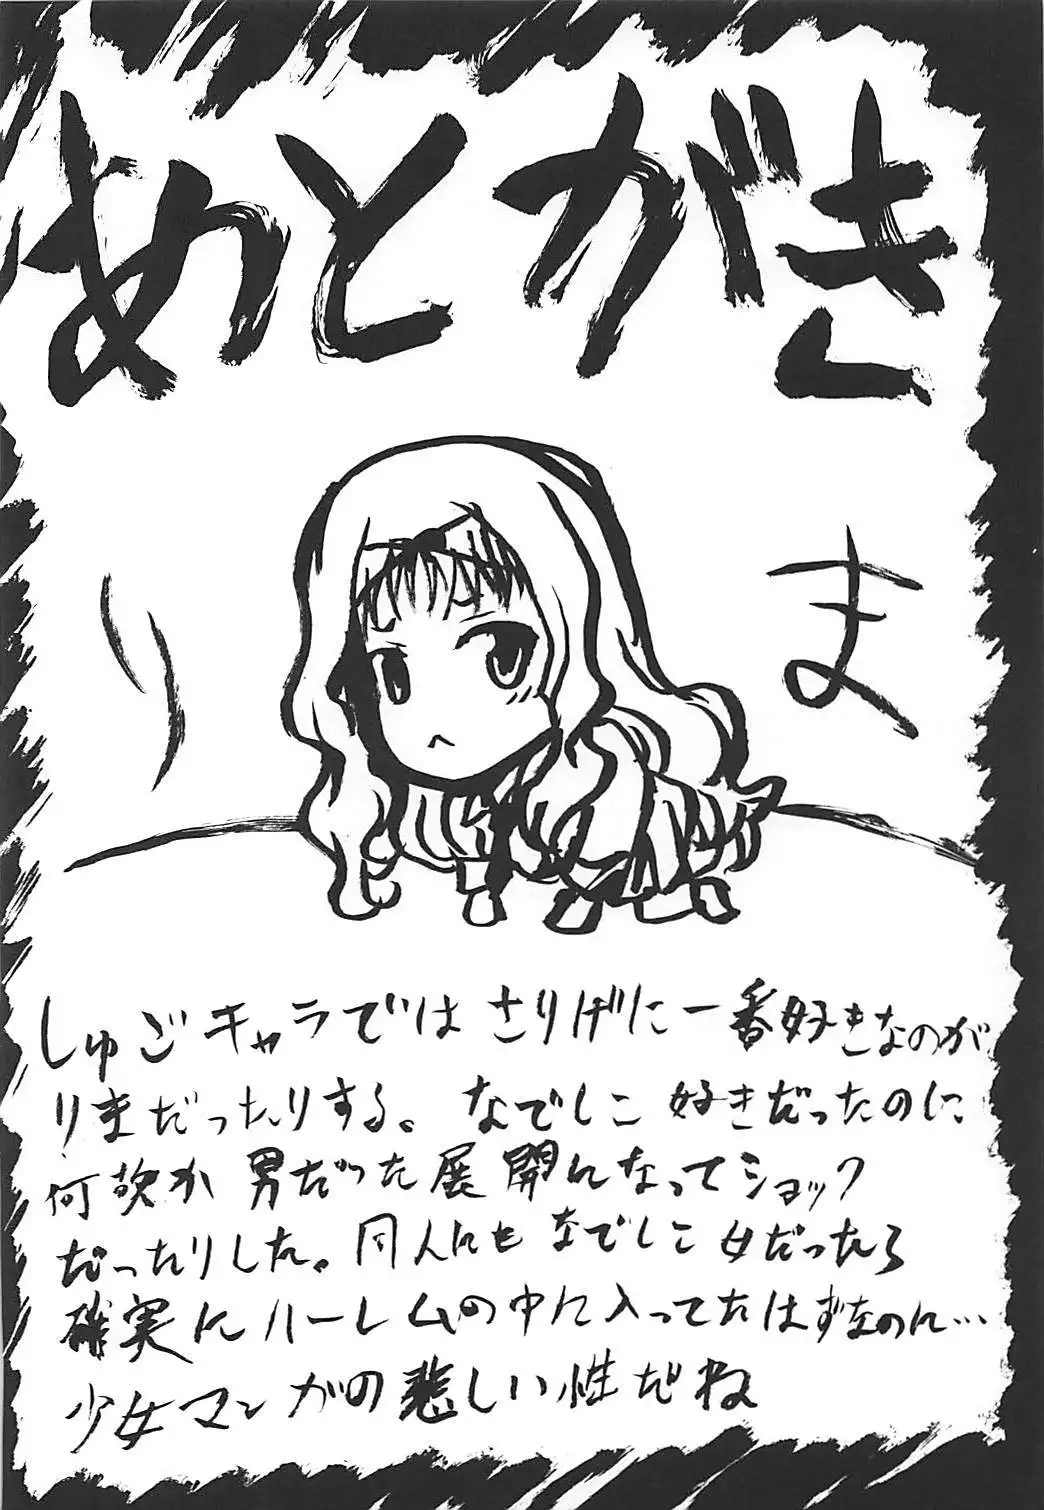 あとがき
りま
しゅごキャラではさりげに一番好きなのが
りまだったりする。なでしこ好きだったのに
何故か男だった展開になってショック
だったりした。同人にもなでしこ女だったら
確実にハーレムの中に入ってたはずなのに…
少女マンガの悲しい性だね